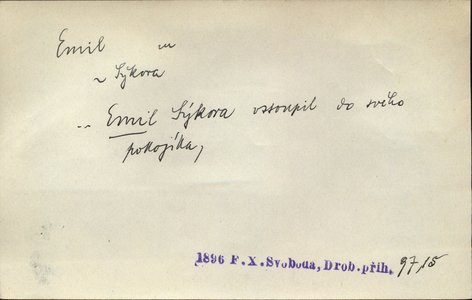 Emil m
~ Sýkora
.. Emil Sýkora vstoupil do svého
pokojíka,
1896 F.X.Svoboda, Drob.příh. 97,15